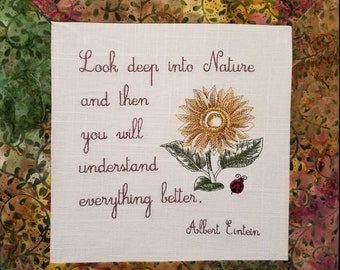 Look deep into Nature
and then
you will
understand
everything better.
Albert Eintein